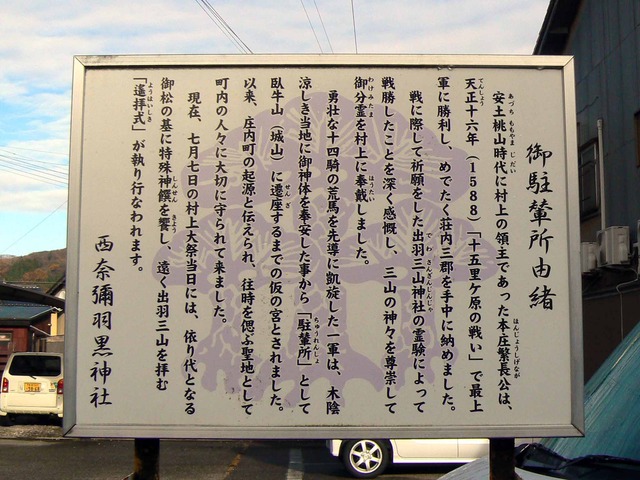 御駐輦所由緒
安土桃山時代に村上の領主であった本庄繁長公は、
天正十六年（1588）「十五里ケ原の戦い」で最上
軍に勝利し、めでたく荘内三郡を手中に納めました。
戦に際して祈願をした出羽三山神社の霊験によって
戦勝したことを深く感慨し、三山の神々を尊崇して
御分霊を村上に奉戴しました。
勇壮な十四騎の荒馬を先導に凱旋した一軍は、木陰
涼しき当地に御神体を奉安した事から「駐輦所」として
臥牛山（城山）に遷座するまでの仮の宮とされました。
以来、庄内町の起源と伝えられ、往時を偲ぶ聖地として
町内の人々に大切に守られて来ました。
現在、七月七日の村上大祭当日には、依り代となる
御松の基に特殊神饌を饗し、遠く出羽三山を拝む
「遙拝式」が執り行なわれます。
西奈彌羽黒神社